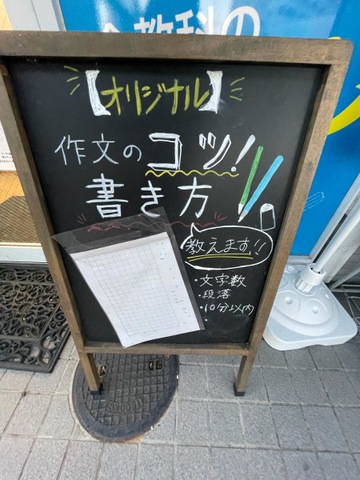 教科の
【オリジナル】
作文の
コツ!
書き方
教えます!!
・文字数
・段落
・10分以内
・